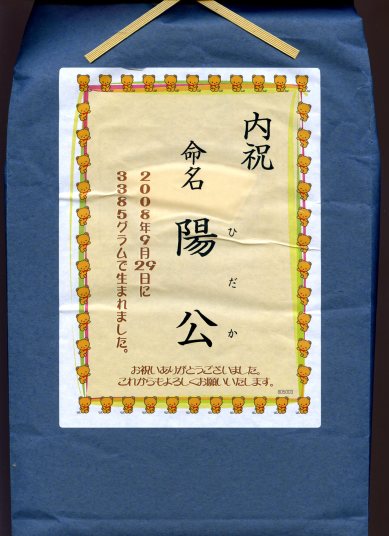 内祝
命名
陽公
ひだか
2008年9月29日に
3385グラムで生まれました。
お祝いありがとうございました。
これからもよろしくお願いいたします。